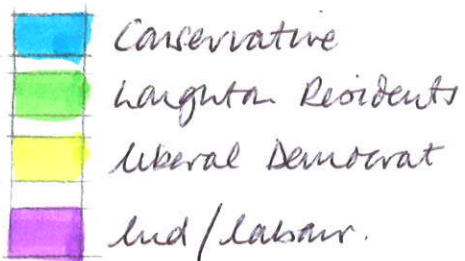 Conservative
Loughton Residents
liberal Democrat
Ind/labour.